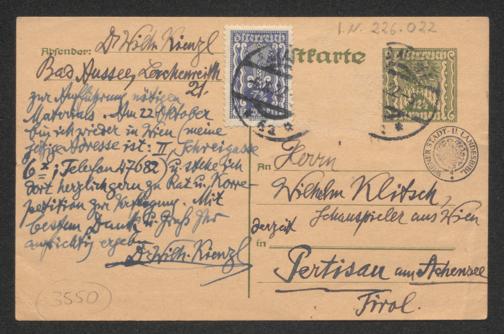 I.N. 226.022
Österreich
Postkarte
Absender: Dr Wilh. Kienzl
Bad Aussee, Lerchenreith
21.
zur Aufführung nötigen
Materials. Am 22. Oktober
bin ich wieder in Wien (meine
jetzige Adresse ist: II, Schreigasse
6; Telefon 47682) u. stehe ich
dort herzlich gern zu Rat u. Korre-
petition zur Verfügung. Mit
bestem Dank u. Gruß Ihr
aufrichtig ergeb.
Dr. Wilh. Kienzl
An Herrn
Wilhelm Klitsch,
Schauspieler aus Wien
derzeit
in Pertisau am Achensee
Tirol.
WIENER STADT- U. LANDESBIBL.
3550